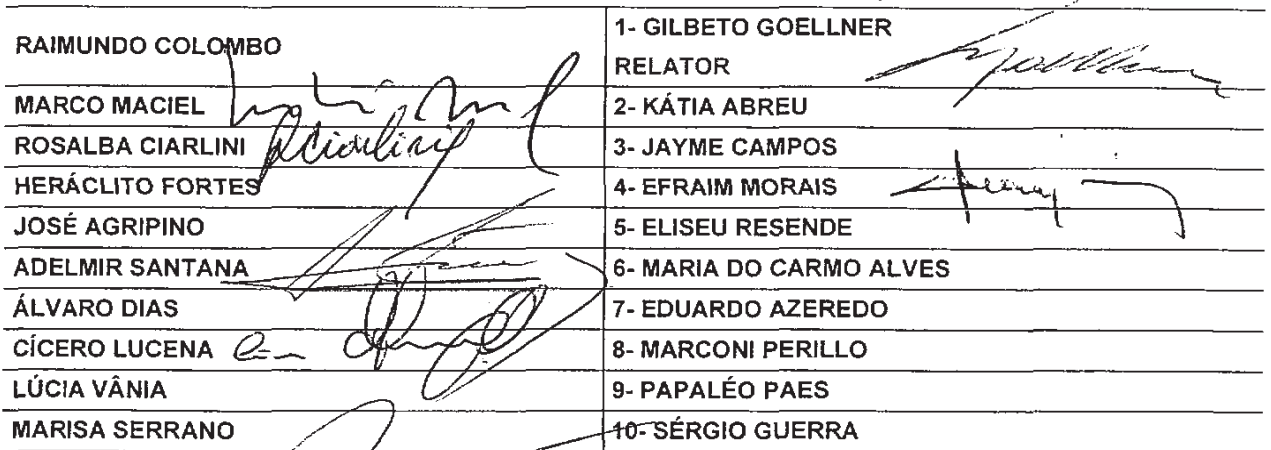 RAIMUNDO COLOMBO
1- GILBETO GOELLNER
RELATOR
MARCO MACIEL
2- KÁTIA ABREU
ROSALBA CIARLINI
3- JAYME CAMPOS
HERÁCLITO FORTES
4- EFRAIM MORAIS
JOSÉ AGRIPINO
5- ELISEU RESENDE
ADELMIR SANTANA
6- MARIA DO CARMO ALVES
ÁLVARO DIAS
7- EDUARDO AZEREDO
CÍCERO LUCENA
8- MARCONI PERILLO
LÚCIA VÂNIA
9- PAPALÉO PAES
MARISA SERRANO
10- SÉRGIO GUERRA